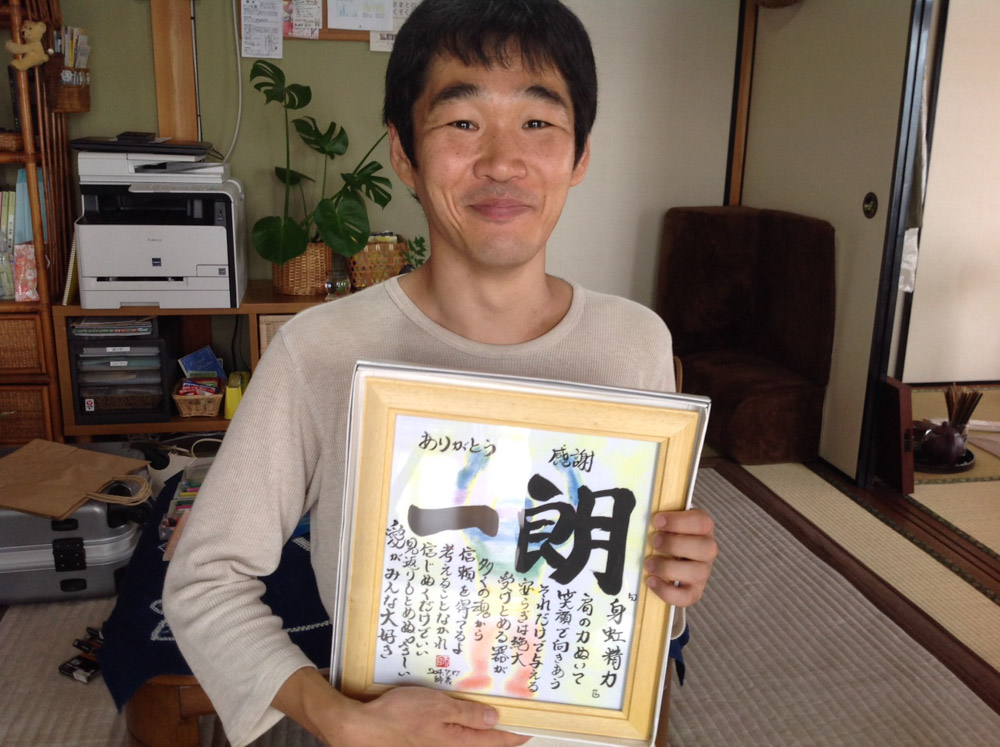 感謝
ありがとう
朗一
「身虹精力」
肩の力ぬいて
笑顔で向きあう
それだけで与える
安らぎは絶大
受けとめる器が
多くの魂から
信頼を得てるよ
考えることなかれ
信じぬくだけでいい
見返りもとめぬやさしい
愛がみんな大好き
Canon